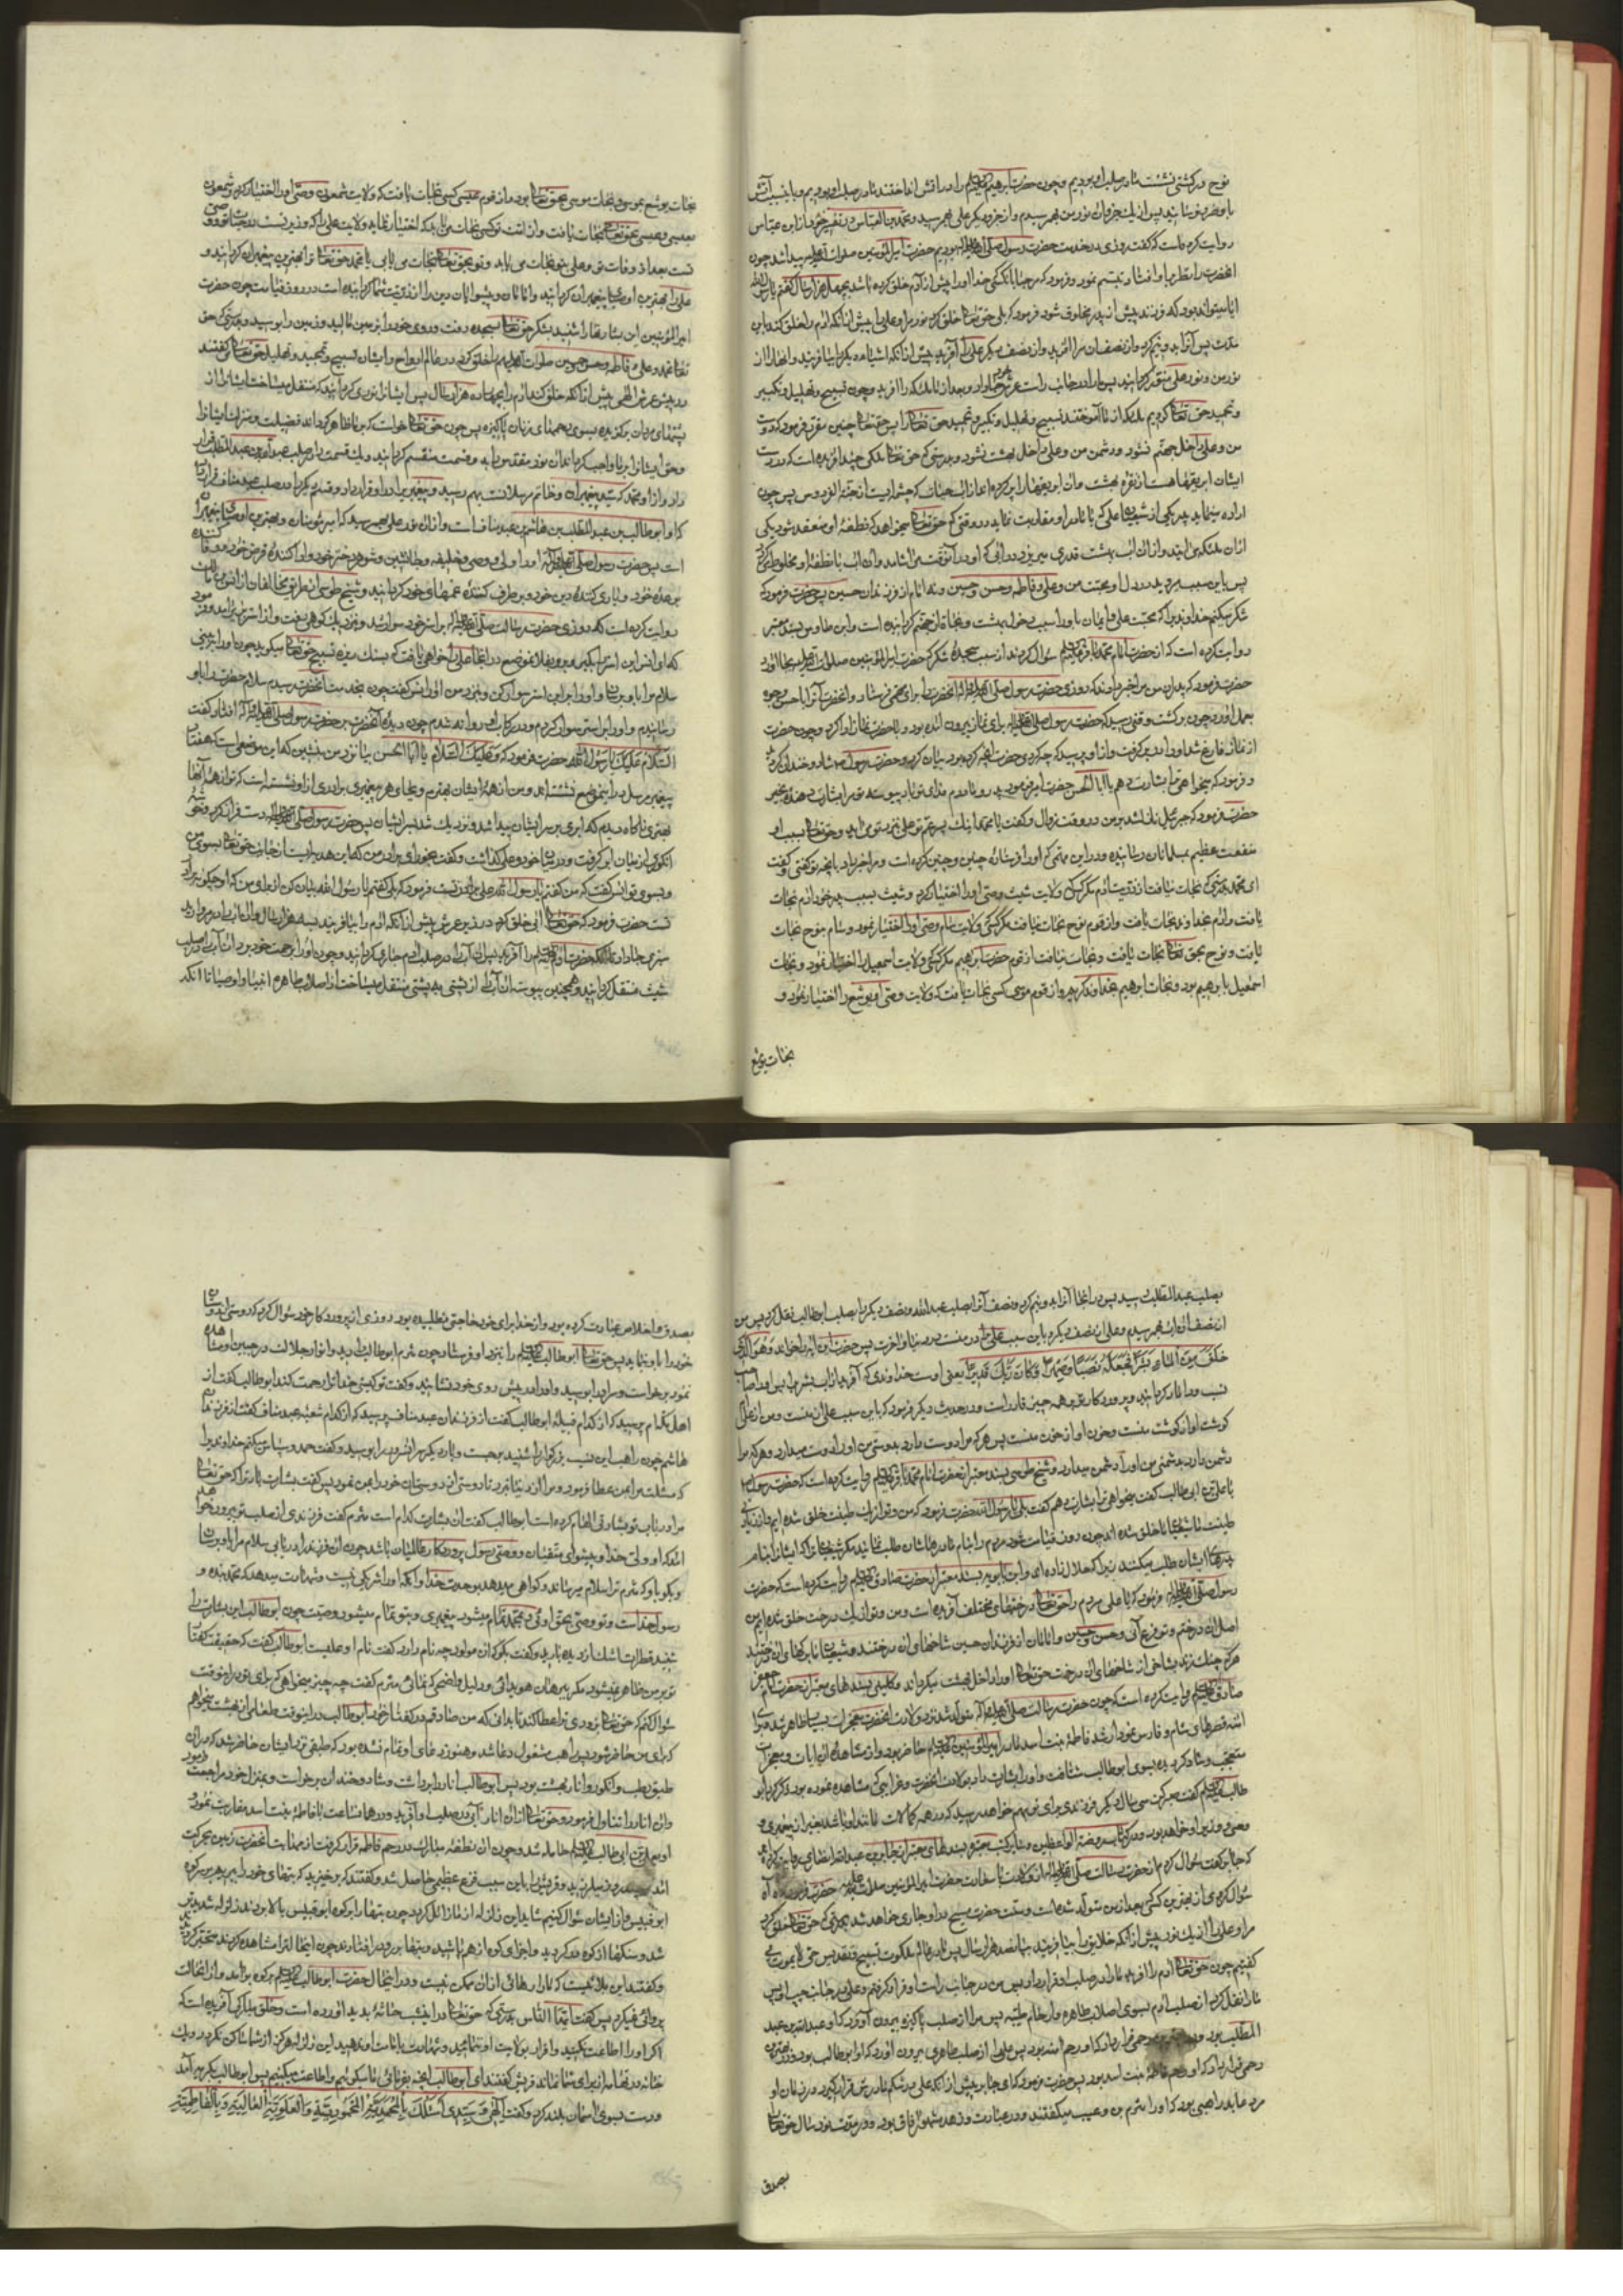 نوح در کشتی نشست ما در صلب او بودیم و چون حضرت ابرهیم علیه السلم را در آتش انداختند ما در صلب او بودیم و باین سبب آتش
روایت کرده است که گفت روزی در خدمت حضرت رسول صلی الله علیه وآله بودیم حضرت امیر المؤمنین صلوات الله علیه پیدا شد چون
آنحضرت را نظر بر او افتاد تبسم نمود و فرمود که مرحبا بآنکسی که خدا او را پیش از آدم خلق کرده باشد بچهل هزار سال گفتم یا رسول الله
آیا میتواند بود که فرزند پیش از پدر مخلوق شود فرمود که بلی حق تعالی خلق کرد نور مرا و علی را پیش از آنکه آدم را خلق کند باین
مدت پس آنرا بدو نیم کرد و از نصف آن مرا آفرید و از نصف دیگر علی را آفرید پیش از آنکه اشیاء دیگر را بیافریند
نور من و نور علی منور گردانید پس ما را در جانب راست عرش خود جا داد و بعد از ما ملائکه را آفرید و چون تسبیح و تهلیل و تکبیر
و تحمید حق تعالی کردیم ملائکه از ما آموختند تسبیح و تهلیل و تکبیر و تحمید حق تعالی را پس حق تعالی چنین مقرر فرمود که دوست
من و علی داخل جهنم نشود و دشمن من و علی داخل بهشت نشود و بدرستی که حق تعالی ملکی چند آفریده است که در دست
ایشان ابریقها هست از نقره بهشت
اراده مینماید پدر یکی از شیعیان علی که با مادر او مقاربت نماید در وقتی که حق تعالی میخواهد که نطفهٔ او منعقد شود یکی
از آن ملکها می آید و از آن آب بهشت قدری میریزد در آبی که او در آنوقت می آشامد و آن آب با نطفهٔ او مخلوط میگردد
پس باین سبب میروید در دل او محبت من و علی و فاطمه و حسن و حسین و نه امام از فرزندان حسین پس حضرت فرمود که
شکر میکنم خداوندی را که محبت علی و ایمان باو را سبب دخول بهشت و نجات از جهنم گردانیده است و ابن طاوس بسند معتبر
روایت کرده است که از حضرت امام محمد باقر علیه السلم سؤال کردند از سبب سجدهٔ شکر که حضرت امیر المؤمنین صلوات الله علیه بجا آورد
حضرت فرمود که پدران من مرا خبر دادند که روزی حضرت رسول صلی الله علیه وآله آنحضرت را برای مهمی فرستاد و آنحضرت آنرا باحسن وجوه
بعمل آورد چون برگشت وقتی رسید که حضرت رسول صلی الله علیه وآله برای نماز بیرون آمده بود و با آنحضرت نماز را ادا کرد و چون حضرت
از نماز فارغ شد او را در بر گرفت و از او پرسید که چه کردی حضرت آنچه کرده بود بیان کرد و حضرت رسول ص شاد و خندان گردید
و فرمود که میخواهی ترا بشارت دهم یا ابا الحسن حضرت امیر فرمود پدر و مادرم فدای تو باد پیوسته تو مرا بشارت دهنده بخیر
حضرت فرمود که جبرئیل نازل شد بر من در وقت زوال و گفت یا محمد اینک پسر عم تو علی نزد تو می آید و حق تعالی بسبب او
منفعت عظیم بمسلمانان رسانیده
ای محمد بدرستی که نجات نیافت از ذریت آدم مگر کسی که ولایت شیث وصی او را اختیار کرد و شیث بسبب پدر خود آدم نجات
یافت و آدم بخداوند نجات یافت و از قوم نوح نجات نیافت مگر کسی که ولایت سام وصی او را اختیار نمود و سام بنوح نجات
یافت و نوح بحق تعالی نجات یافت و نجات نیافت از قوم حضرت ابرهیم مگر کسی که ولایت اسمعیل را اختیار نمود و نجات
اسمعیل بابرهیم بود و نجات ابرهیم بخداوند کریم و از قوم موسی کسی نجات یافت که ولایت وصی او یوشع را اختیار نمود و
نجات یوشع
نجات یوشع بموسی و نجات موسی بحق تعالی بود و از قوم عیسی کسی نجات یافت که ولایت شمعون وصی او را اختیار کرد و شمعون
بعیسی و عیسی بحق تعالی نجات یافت و از امت تو کسی نجات می یابد که اختیار نماید ولایت علی را که وزیر تست در حیات تو و وصی
تست بعد از وفات تو و علی بتو نجات می یابد و تو بحق تعالی نجات می یابی یا محمد حق تعالی ترا بهترین پیغمبران گردانید و
علی را بهترین اوصیاء پیغمبران گردانید و امامان و پیشوایان دین را از ذریت شما گردانیده است در روز قیامت چون حضرت
امیر المؤمنین این بشارتها را شنید بشکر حق تعالی بسجده رفت و روی خود را بر زمین مالید و زمین را بوسید و بدرستی که حق
تعالی محمد و علی و فاطمه و حسن و حسین صلوات الله علیهم را خلق کرد در عالم ارواح و ایشان تسبیح و تمجید و تهلیل حق تعالی میگفتند
در پیش عرش الهی پیش از آنکه خلق کند آدم را بچهارده هزار سال پس ایشانرا نوری گردانید که منتقل میساخت ایشانرا از
پشتهای مردان برگزیده بسوی رحمهای زنان پاکیزه پس چون حق تعالی خواست که بر ما ظاهر گرداند فضیلت و منزلت ایشانرا
داد و از او محمد که سید پیغمبران و خاتم رسالت بهم رسید
که او ابو طالب بن عبد المطلب بن هاشم بن عبد مناف است و از آن نور علی بهم رسید که امیر مؤمنان و بهترین اوصیاء پیغمبران
است پس حضرت رسول صلی الله علیه وآله او را ولی و وصی و خلیفه و جانشین و شوهر دختر خود و ادا کنندهٔ قرض خود و وفا کننده
بوعدهٔ خود و یاری کنندهٔ دین خود و برطرف کنندهٔ غمهای خود گردانید و شیخ طوسی از طریق مخالفان از انس بن مالک
روایت کرده است که روزی حضرت رسالت صلی الله علیه وآله بر استر خود سوار شد و بنزدیک کوهی رفت و از استر بزیر آمد و فرمود
که ای انس این استر را بگیر و برو بفلان موضع در آنجا علی را خواهی یافت که بسنک ریزه تسبیح حق تعالی میگوید چون او را ببینی
سلام مرا باو برسان و او را بر این استر سوار کن و بنزد من آور انس گفت چون بخدمت آنحضرت رسیدم سلام حضرت را باو
رسانیدم و او را بر استر سوار کردم و در رکاب او روانه شدم چون دیدهٔ آنحضرت بر حضرت رسول صلی الله علیه وآله افتاد گفت
السلام علیک یا رسول الله حضرت فرمود که و علیک السلام یا ابا الحسن بیا نزد من بنشین که این موضعی است که هفتاد
پیغمبر مرسل در این موضع نشسته اند و من از همهٔ ایشان بهترم و بجای هر پیغمبری برادری از او نشسته است که تو از همهٔ آنها
بهتری ناگاه دیدم که ابری بر سر ایشان پیدا شد و نزدیک شد بسر ایشان پس حضرت رسول صلی الله علیه وآله دست فراز کرد و خوشهٔ
انگوری از میان ابر گرفت و در میان خود و علی گذاشت و گفت بخور ای برادر من که این هدیه ایست از جانب حق تعالی بسوی من
و بسوی تو انس گفت که من گفتم یا رسول الله علی برادر تست فرمود که بلی گفتم یا رسول الله بیان کن از برای من که او چگونه برادر
تست حضرت فرمود که حق تعالی آبی خلق کرد در زیر عرش پیش از آنکه آدم را بیافریند بسه هزار سال
سبزی جا داد تا آنکه حضرت آدم علیه السلم را آفرید پس آن آب را در صلب آدم جاری گردانید و چون او را برحمت خود برد آن آب را در صلب
شیث منتقل گردانید و همچنین پیوسته آن آب از پشتی به پشتی منتقل میساخت از اصلاب طاهره انبیا و اوصیا تا آنکه
بصلب عبد المطلب رسید پس در آنجا آنرا بدو نیم کرد و نصف آنرا بصلب عبدالله و نصف دیگر را بصلب ابو طالب نقل کرد پس من
از نصف آن آب بهم رسیدم و علی از نصف دیگر و باین سبب علی برادر منست در دنیا و آخرت پس حضرت این آیه را خواند و هو الذی
خلق من الماء بشرا فجعله نسبا و صهرا و کان ربک قدیرا یعنی اوست خداوندی که آفرید از آب بشری را پس او را صاحب
نسب و داماد گردانید و پروردگار تو بر همه چیز قادر است و در حدیث دیگر فرمود که باین سبب علی از منست و من از علی
گوشت او از گوشت منست و خون او از خون منست پس هر که مرا دوست دارد بدوستی من او را دوست میدارد و هر که مرا
دشمن دارد بدشمنی من او را دشمن میدارد و شیخ طوسی بسند معتبر از حضرت امام محمد باقر علیه السلم روایت کرده است که حضرت رسول ص
با علی بن ابی طالب گفت میخواهی ترا بشارت دهم گفت بلی یا رسول الله حضرت فرمود که من و تو از یک طینت خلق شده ایم و از زیادتی
طینت ما شیعیان ما خلق شده اند چون روز قیامت شود مردم را بنام مادرهاشان طلب نمایند مگر شیعیان ترا که ایشانرا بنام
پدرهای ایشان طلب میکنند زیرا که حلال زاده اند و ابن بابویه بسند معتبر از حضرت صادق علیه السلم روایت کرده است که حضرت
رسول صلی الله علیه وآله فرمود که یا علی مردم را حق تعالی از درختهای مختلف آفریده است و من و تو از یک درخت خلق شده ایم من
اصل آن درختم و تو فرع آنی و حسن و حسین و امامان از فرزندان حسین شاخهای آن درختند و شیعیان ما برگهای آن درختند
هر که چنک زند بشاخی از شاخهای آن درخت حق تعالی او را داخل بهشت میگرداند و کلینی بسندهای معتبر از حضرت امام جعفر
صادق علیه السلم روایت کرده است که چون حضرت رسالت صلی الله علیه وآله متولد شد نزد ولادت آنحضرت معجزات بسیار ظاهر شد
آمنه قصرهای شام و فارس نمودار شد فاطمه بنت اسد مادر امیر المؤمنین علیه السلم حاضر بود و از مشاهدهٔ آن آیات و معجزات
متعجب و شاد گردیده بسوی ابو طالب شتافت و او را بشارت داد بولادت آنحضرت و غرایبی که مشاهده نموده بود ذکر کرد ابو
طالب علیه السلم گفت صبر کن سی سال دیگر فرزندی برای تو بهم خواهد رسید که در همه کمالات مانند او باشد بغیر از پیغمبری و
وصی و وزیر او خواهد بود و در کتاب روضة الواعظین و سایر کتب معتبره بسندهای معتبر از جابر بن عبدالله انصاری روایت کرده اند
که جابر گفت سؤال کردم از حضرت رسالت صلی الله علیه وآله از ولادت با سعادت حضرت امیر المؤمنین صلوات الله علیه حضرت فرمود که آه آه
سؤال کردی از بهترین کسی که بعد از من متولد شده است و سنت حضرت مسیح در او جاری خواهد شد بدرستی که حق تعالی خلق کرد
مرا و علی را از یک نور پیش از آنکه خلایق را بیافریند بپانصد هزار سال پس ما در عالم ملکوت تسبیح و تقدیس حق لایموت می
گفتیم چون حق تعالی آدم را آفرید ما را در صلب او قرار داد پس من در جانب راست او قرار گرفتم و علی در جانب چپ او پس
ما را نقل کرد از صلب آدم بسوی اصلاب طاهره و ارحام طیبه پس مرا از صلب پاکیزه بیرون آورد که او عبدالله بن عبد
المطلب بود
رحمی قرار داد که او رحم فاطمه بنت اسد بود پس حضرت فرمود که ای جابر پیش از آنکه علی در شکم مادرش قرار گیرد در زمان او
مرد عابد راهبی بود که او را مثرم بن دعیب میگفتند و در عبادت و زهد مشهور آفاق بود و در مدت نود سال حق تعالی را
بصدق
بصدق و اخلاص عبادت کرده بود و از خدا برای خود حاجتی نطلبیده بود روزی از پروردگار خود سؤال کرد که دوستی از دوستان
خود را باو بنماید پس حق تعالی ابو طالب علیه السلم را بنزد او فرستاد چون مثرم ابو طالب را دید و انوار جلالت در جبین او مشاهده
نمود برخواست و سر او را بوسید و او را در پیش روی خود نشانید و گفت تو کیستی خدا ترا رحمت کند ابو طالب گفت از
اهل تهامه ام پرسید که از کدام قبیله ابو طالب گفت از فرزندان عبد مناف پرسید که از کدام شعبهٔ عبد مناف گفت از فرزندان
هاشم چون راهب این نسب بزرگوار را شنید برجست و بار دیگر سر آنسرور را بوسید و گفت حمد و سپاس میکنم خداوندی را
که مسئلت مرا بمن عطا فرمود و مرا از دنیا نبرد تا دوستی از دوستان خود را بمن نمود پس گفت بشارت باد ترا که حق تعالی
مرا در باب تو بشارتی الهام کرده است ابو طالب گفت آن بشارت کدام است مثرم گفت فرزندی از صلب تو بیرون خواهد
آمد که او ولی خدا و پیشوای متقیان و وصی رسول پروردگار عالمیان باشد چون آن فرزند را دریابی سلام مرا باو برسان
و بگو باو که مثرم ترا سلام میرساند و گواهی میدهد بوحدت خدا و آنکه او را شریکی نیست و شهادت میدهد که محمد بنده و
رسول خداست و تو وصی بحق اوئی و بمحمد تمام میشود پیغمبری و بتو تمام میشود وصیت چون ابو طالب این بشارت را
شنید قطرات اشک از دیده بارید و گفت بگو که آن مولود چه نام دارد گفت نام او علیست ابو طالب گفت که حقیقت گفتار
تو بر من ظاهر نمیشود مگر ببرهان هویدائی و دلیل واضحی که نمائی مثرم گفت چه چیز میخواهی که برای تو در اینوقت
سؤال کنم که حق تعالی بزودی ترا عطا کند تا بدانی که من صادقم در گفتار خود ابو طالب گفت در اینوقت طعامی از بهشت میخواهم
که برای من حاضر شود پس راهب مشغول دعا شد و هنوز دعای او تمام نشده بود که طبقی نزد ایشان حاضر شد که در آن
طبق رطب و انگور و انار بهشت بود پس ابو طالب انار را برداشت و شاد و خندان برخواست و بمنزل خود مراجعت فرمود
و آن انار را تناول فرمود و حق تعالی از آن انار آبی در صلب او آفرید و در همان ساعت با فاطمه بنت اسد مقاربت نمود و
او بعلی بن ابی طالب علیه السلم حامله شد و چون آن نطفهٔ مبارک در رحم فاطمه قرار گرفت از مهابت آنحضرت زمین بحرکت
آمد و چند روز میلرزید و قریش را باین سبب فزع عظیمی حاصل شد و گفتند که برخیزید که بتهای خود را ببریم بر سر کوه
ابو قبیس و از ایشان سؤال کنیم شاید این زلزله از ما زائل گردد چون بتها را بر کوه ابو قبیس بالا بردند زلزله شدیدتر
شد و سنگها از کوه فرو گردید و اجزای کوه از هم پاشید و بتها برو در افتادند چون اینحال را مشاهده کردند متحیر گردیدند
و گفتند این بلائیست که ما را رهائی از آن ممکن نیست و در اینحال حضرت ابو طالب علیه السلم بر کوه بر آمد و از آنحالت
پروائی نمیکرد پس گفت ایها الناس بدرستی که حق تعالی در اینشب حادثهٔ پدید آورده است و خلق بزرگی آفریده است که
اگر او را اطاعت نکنید و اقرار بولایت او ننمائید و شهادت بامامت او ندهید این زلزله هرگز از شما ساکن نگردد و یک
خانه در تهامه از برای شما نماند قریش گفتند ای ابو طالب آنچه بفرمائی ما میگوئیم و اطاعت میکنیم پس ابو طالب بگریه آمد
و دست بسوی آسمان بلند کرد و گفت الهی و سیدی اسئلک بالمحمدیة المحمودیة و بالعلویة العالیة و بالفاطمیة